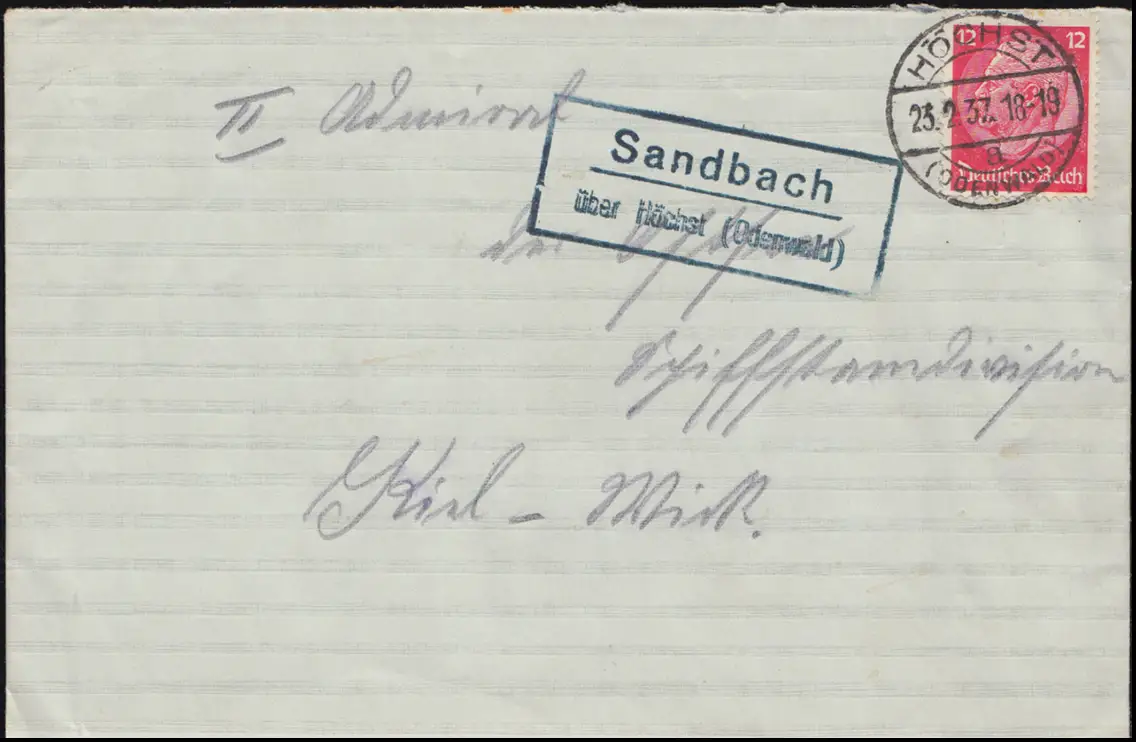 12 12
HÖCHST
23.2.37. 18-19
a
(ODENWALD)
Deutsches Reich
II Admiral
Sandbach
über Höchst (Odenwald)
der
Schiffstamdivision
Kiel - Wick.